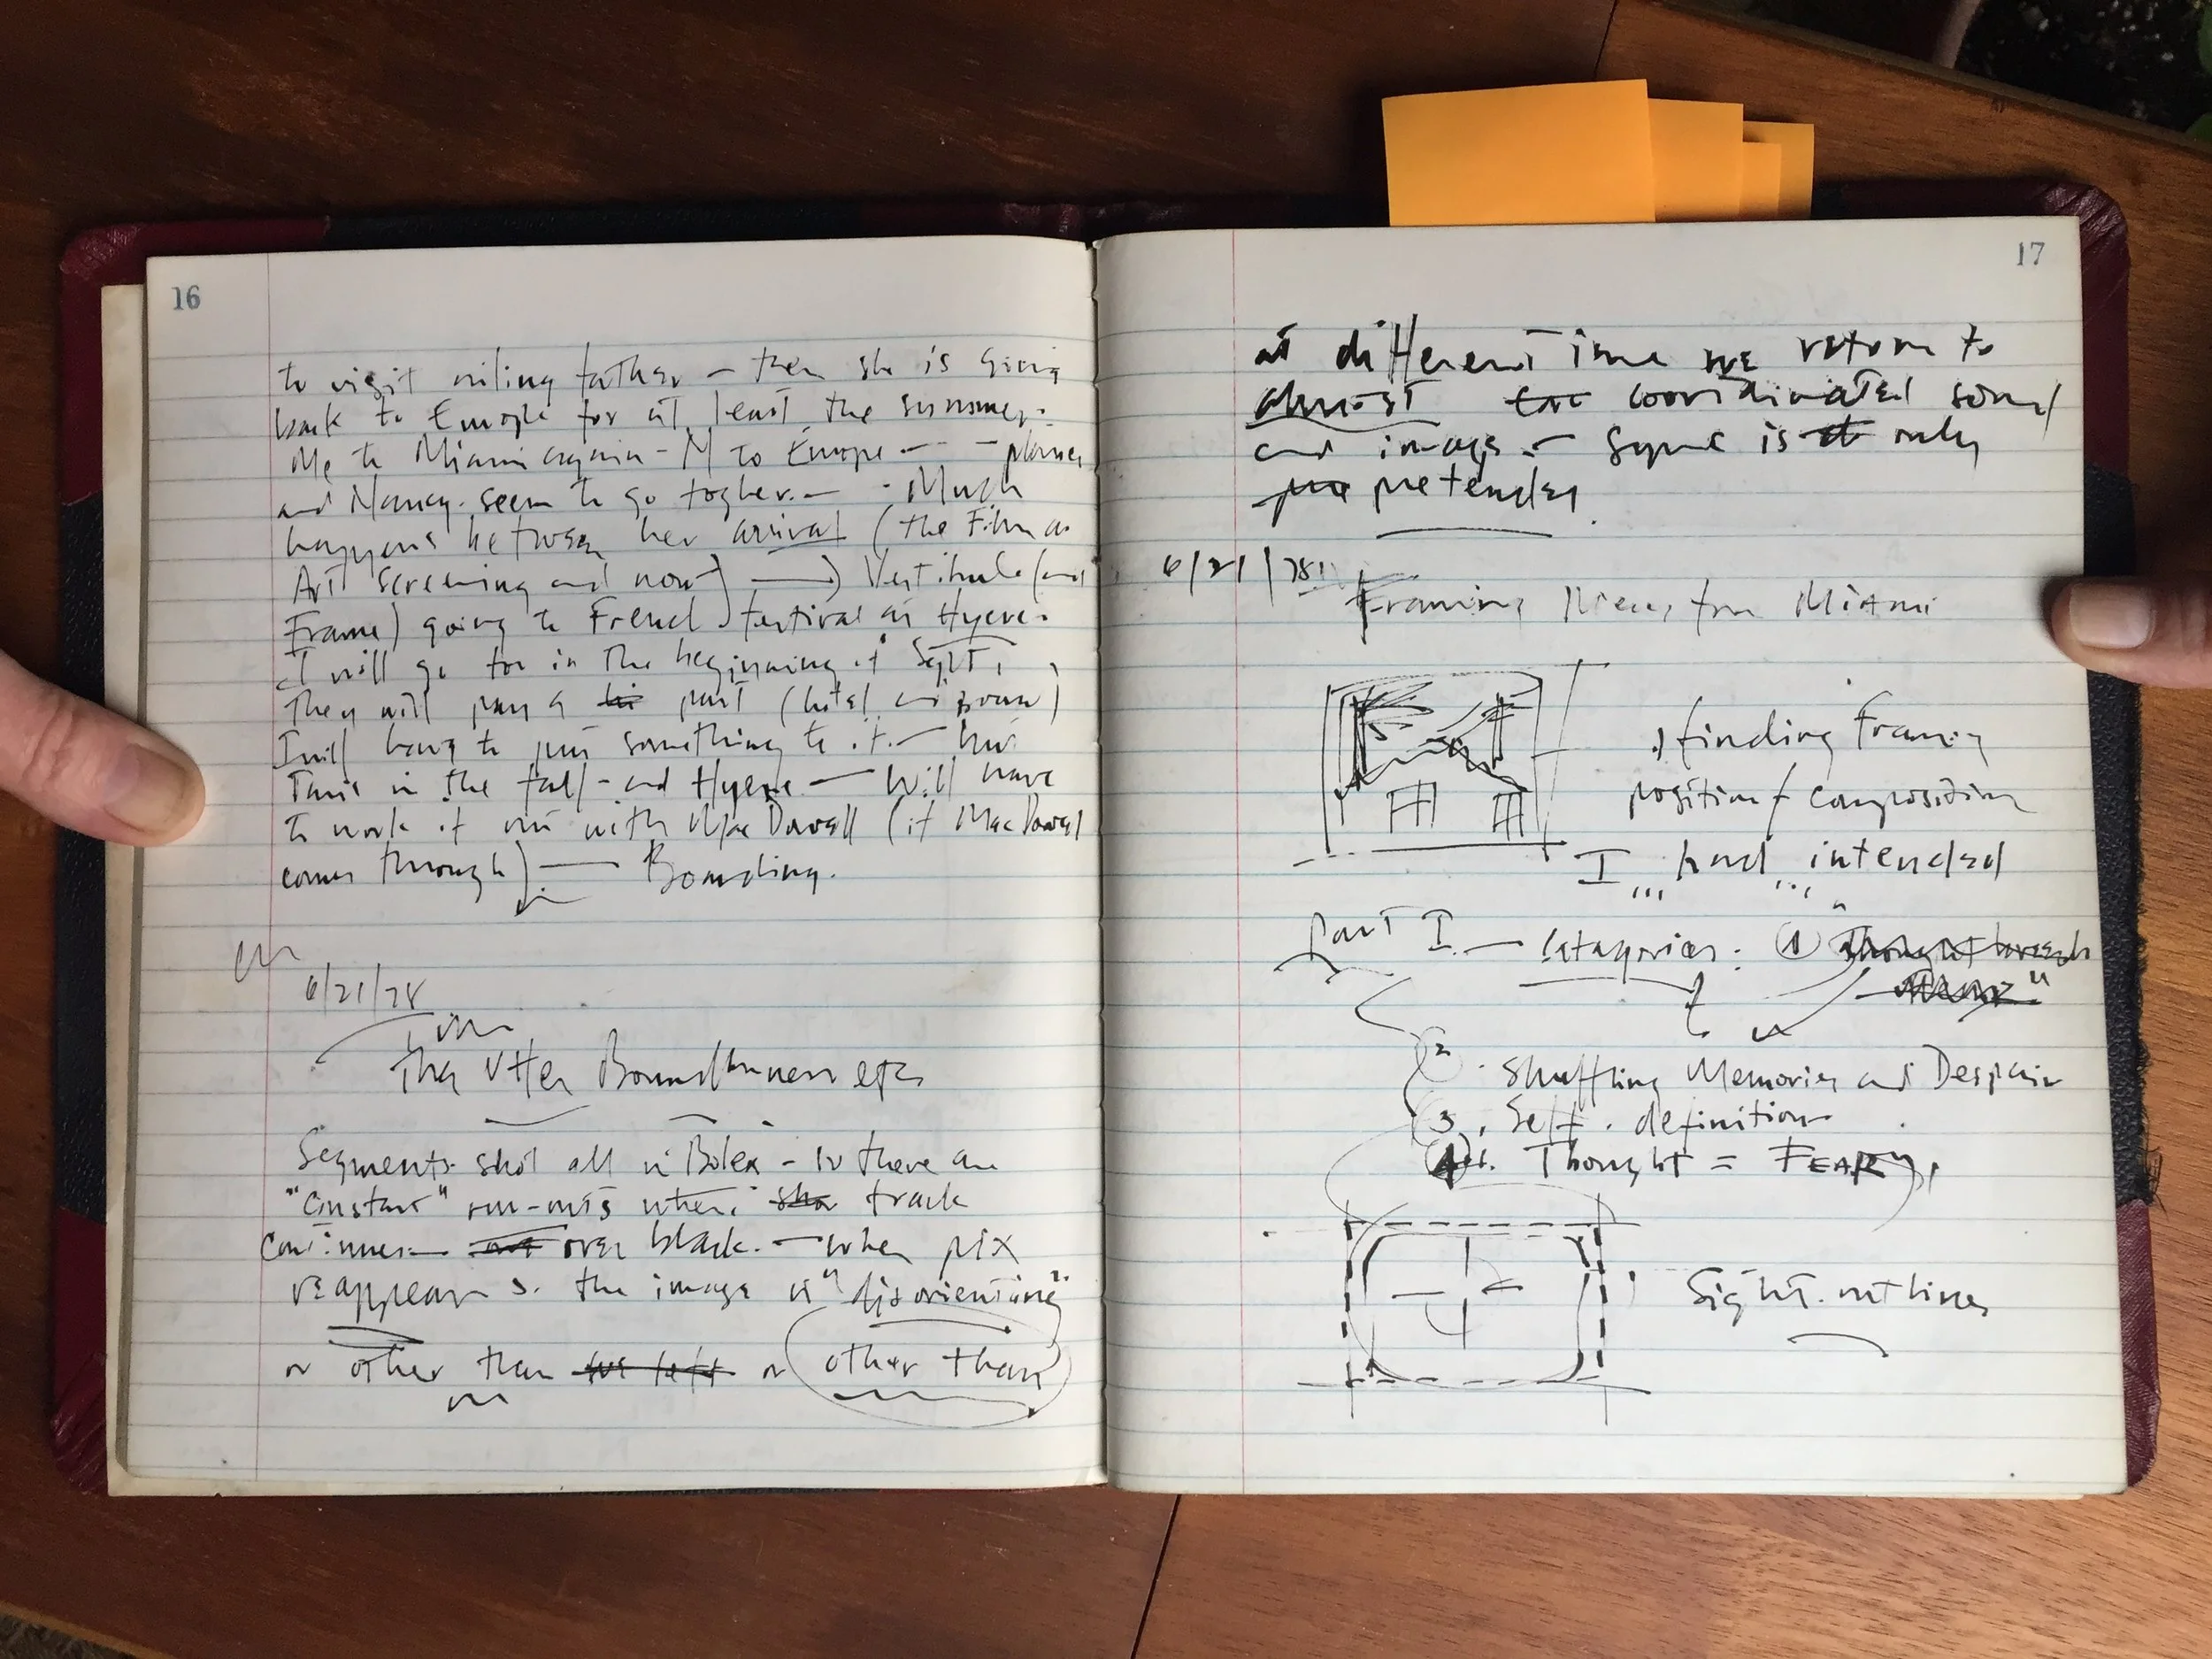 16
to visit ailing father – then she is going
back to Europe for at least the summer.
Me to Miami again – M to Europe – – planes
and Nancy. seem to go togher. – . Much
happens between her arrival (the Film as
Art screening and now) → Vestibule (and
Frame) going to French festival in Hyere.
I will go for in the beginning of Sept,
they will pay a part (hotel and room)
I will have to put something to it. – but
Paris in the fall – and Hyere – Will have
to work it out with MacDowell (if MacDowel
comes through) – Boarding.
6/21/78
The Utter Boundlunness etc
Segments shot all in Bolex – so there are
"constant" run-outs where track
continues over black. – when pix
reappears. the image is "disorienting"
or other than or other than
17
at different time we return to
almost coordinated sound
and image – Sync is only
pretended.
6/21/78
Framing Views from Miami
finding framing
position / composition
I had intended
Part I. – Catagories: 1
2. Shuffling Memories and Despair
3. Self. definition
4. Thought = FEAR,
Sight. outlines